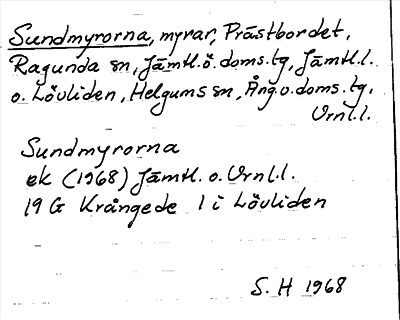 Sundmyrorna, myrar, Prästbordet,
Ragunda sn, Jämtl.ö.doms.tg, Jämtl.l.
o. Lövliden, Helgums sn, Ång.v.doms.tg,
Vrnl.l.
Sundmyrorna
ek (1968) Jämtl. o. Vrnl.l.
19 G Krångede 1 i Lövliden
S. H 1968